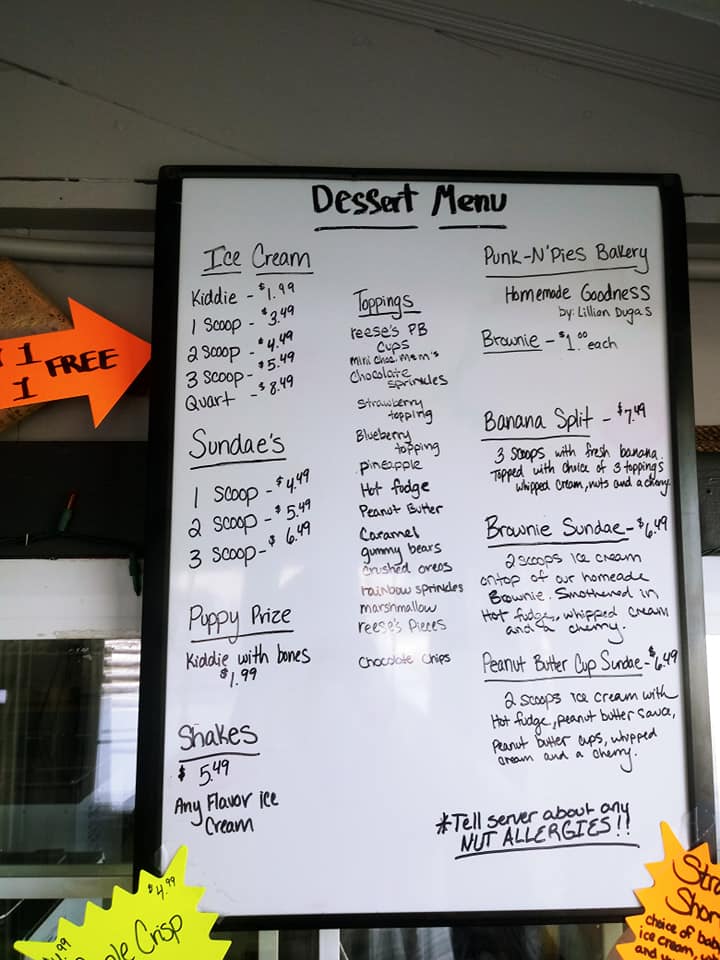 Dessert Menu
Ice Cream
Kiddie - $1.99
1 Scoop - $3.49
2 Scoop - $4.49
3 Scoop - $5.49
Quart - $8.49
Sundae's
1 Scoop - $4.49
2 Scoop - $5.49
3 Scoop - $6.49
Puppy Prize
Kiddie with bones
$1.99
Shakes
$5.49
Any Flavor ice
Cream
Toppings
reese's PB
Cups
mini choc. m&m's
Chocolate
sprinkles
Strawberry
topping
Blueberry
topping
pineapple
Hot fudge
Peanut Butter
Caramel
gummy bears
crushed oreos
rainbow sprinkles
marshmallow
reese's Pieces
Chocolate Chips
Punk-N'Pies Bakery
Homemade Goodness
by: Lillian Dugas
Brownie - $1.00 each
Banana Split - $7.49
3 scoops with fresh banana.
Topped with choice of 3 toppings
whipped cream, nuts and a cherry
Brownie Sundae - $6.49
2 scoops ice cream
on top of our homeade
Brownie. Smothered in
Hot fudge, whipped cream
and a cherry.
Peanut Butter Cup Sundae - $6.49
2 scoops ice cream with
Hot fudge, peanut butter sauce,
Peanut butter cups, whipped
cream and a cherry.
*Tell server about any
NUT ALLERGIES!!
1
1 FREE
$4.99
.99
Crisp
choice of
ice cream,